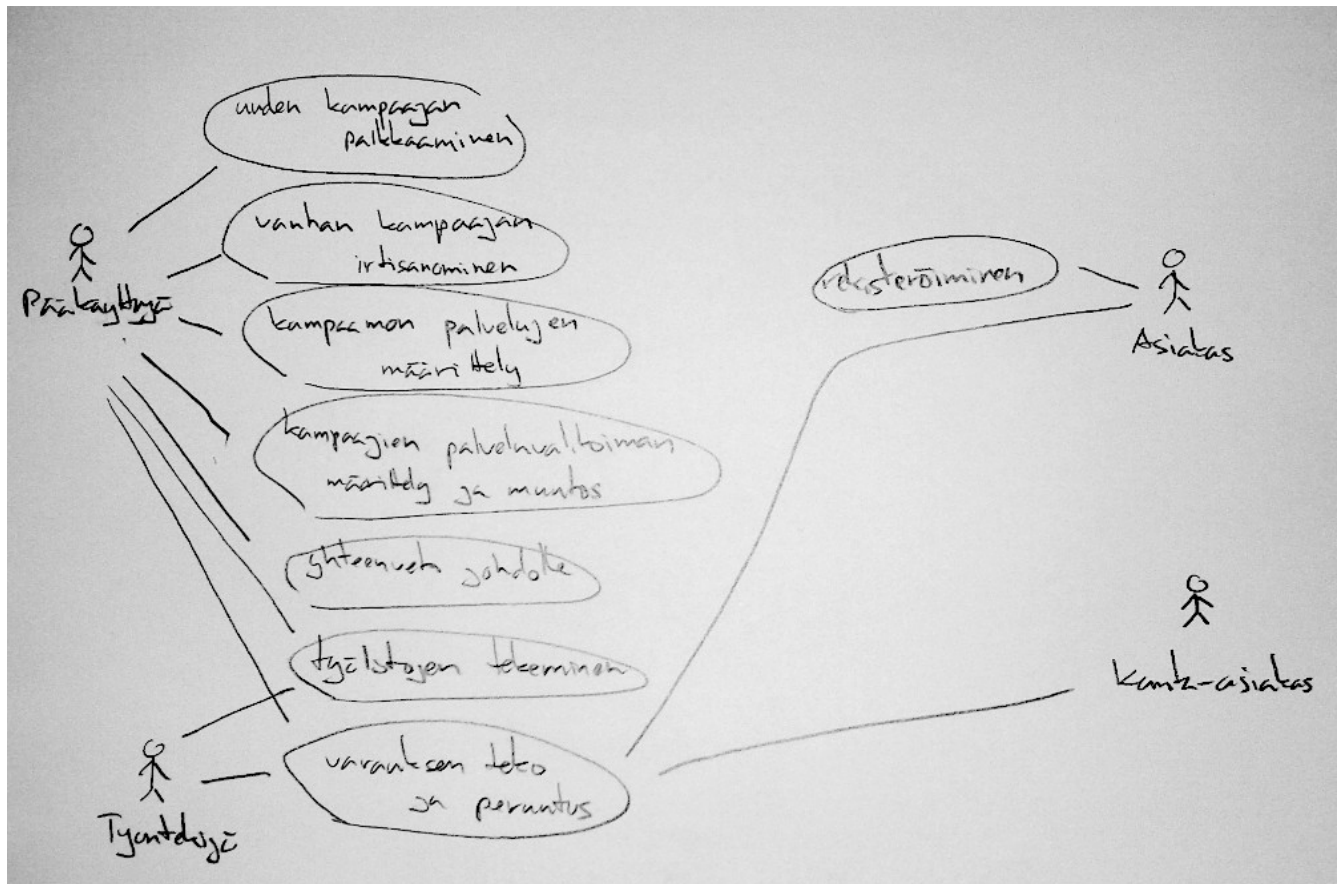 uuden kampaajan
palkkaaminen
vanhan kampaajan
irtisanominen
Pääkäyttäjä
kampaamon palvelujen
määrittely
kampaajien palveluvalikoiman
määrittely ja muutos
yhteenveto johdolle
työlistojen tekeminen
varauksen teko
ja peruutus
Työntekijä
rekisteröiminen
Asiakas
Kanta-asiakas